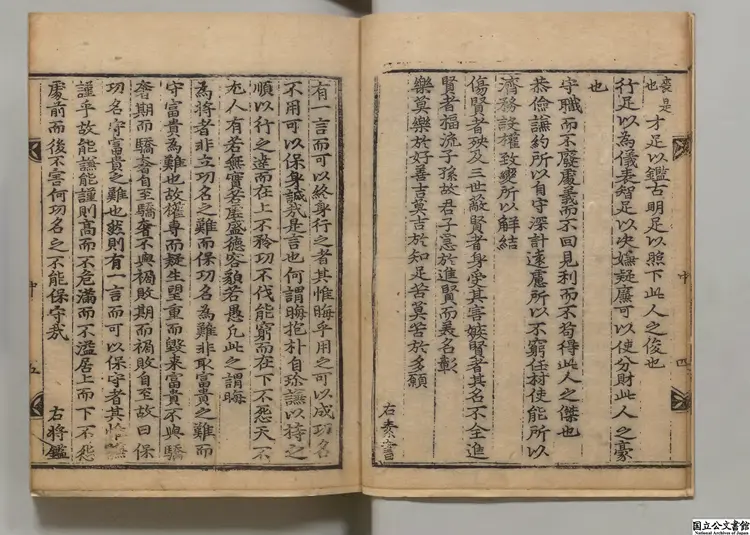 喪是
也
才足以鑑古明足以照下此人之俊也
行足以為儀表智足以決嫌疑廉可以使分財此人之豪
也
守職而不廢處義而不回見利而不苟得此人之傑也
恭儉謙約所以自守深計遠慮所以不窮任材使能所以
濟務設權致變所以解結
傷賢者殃及三世蔽賢者身受其害嫉賢者其名不全進
賢者福流子孫故君子急於進賢而美名彰
樂莫樂於好善吉莫吉於知足苦莫苦於多願
右素書
中 四
有一言而可以終身行之者其惟晦乎用之可以成功名
不用可以保身誠哉是言也何謂晦抱朴自珍謙以持之
順以行之達而在上不矜功不伐能窮而在下不怨天不
尤人有若無實若虛盛德容貌若愚凡此之謂晦
為將者非立功名之難而保功名為難非取富貴之難而
守富貴為難也故權專而疑生望重而毀来富貴不與驕
奢期而驕奢自至驕奢不與禍敗期而禍敗自至故曰保
功名守富貴之難也然則有一言而可以保守者其
謹乎故能謙能謹則高而不危滿而不溢居上而下不怨
處前而後不害何功名之不能保守哉 右將鑑
中 五
国立公文書館
National Archives of Japan